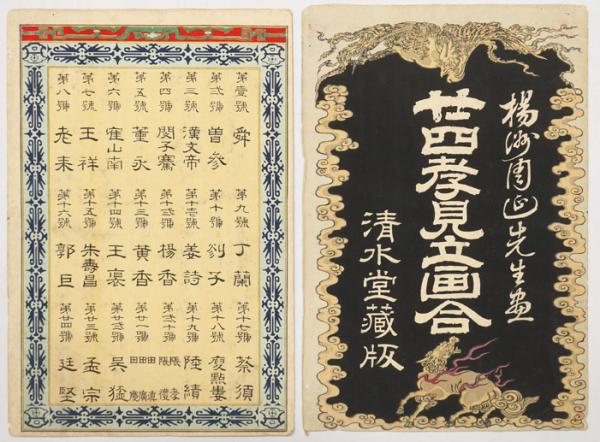 楊洲周延先生画
廿四孝見立画合
清水堂藏版
第壹號 舜
第弐號 曽参
第三號 漢文帝
第四號 閔子騫
第五號 董永
第六號 崔山南
第七號 王祥
第八號 老来
第九號 丁蘭
第十號 剡子
第十壹號 姜詩
第十弐號 楊香
第十三號 黄香
第十四號 王裒
第十五號 朱壽昌
第十六號 郭巨
第十七號 蔡須
第十八號 庾黔婁
第十九號 陸績
第二十號 張孝 張禮
第廿一號 田真 田廣 田慶
第廿弐號 吴猛
第廿三號 孟宗
第廿四號 廷堅